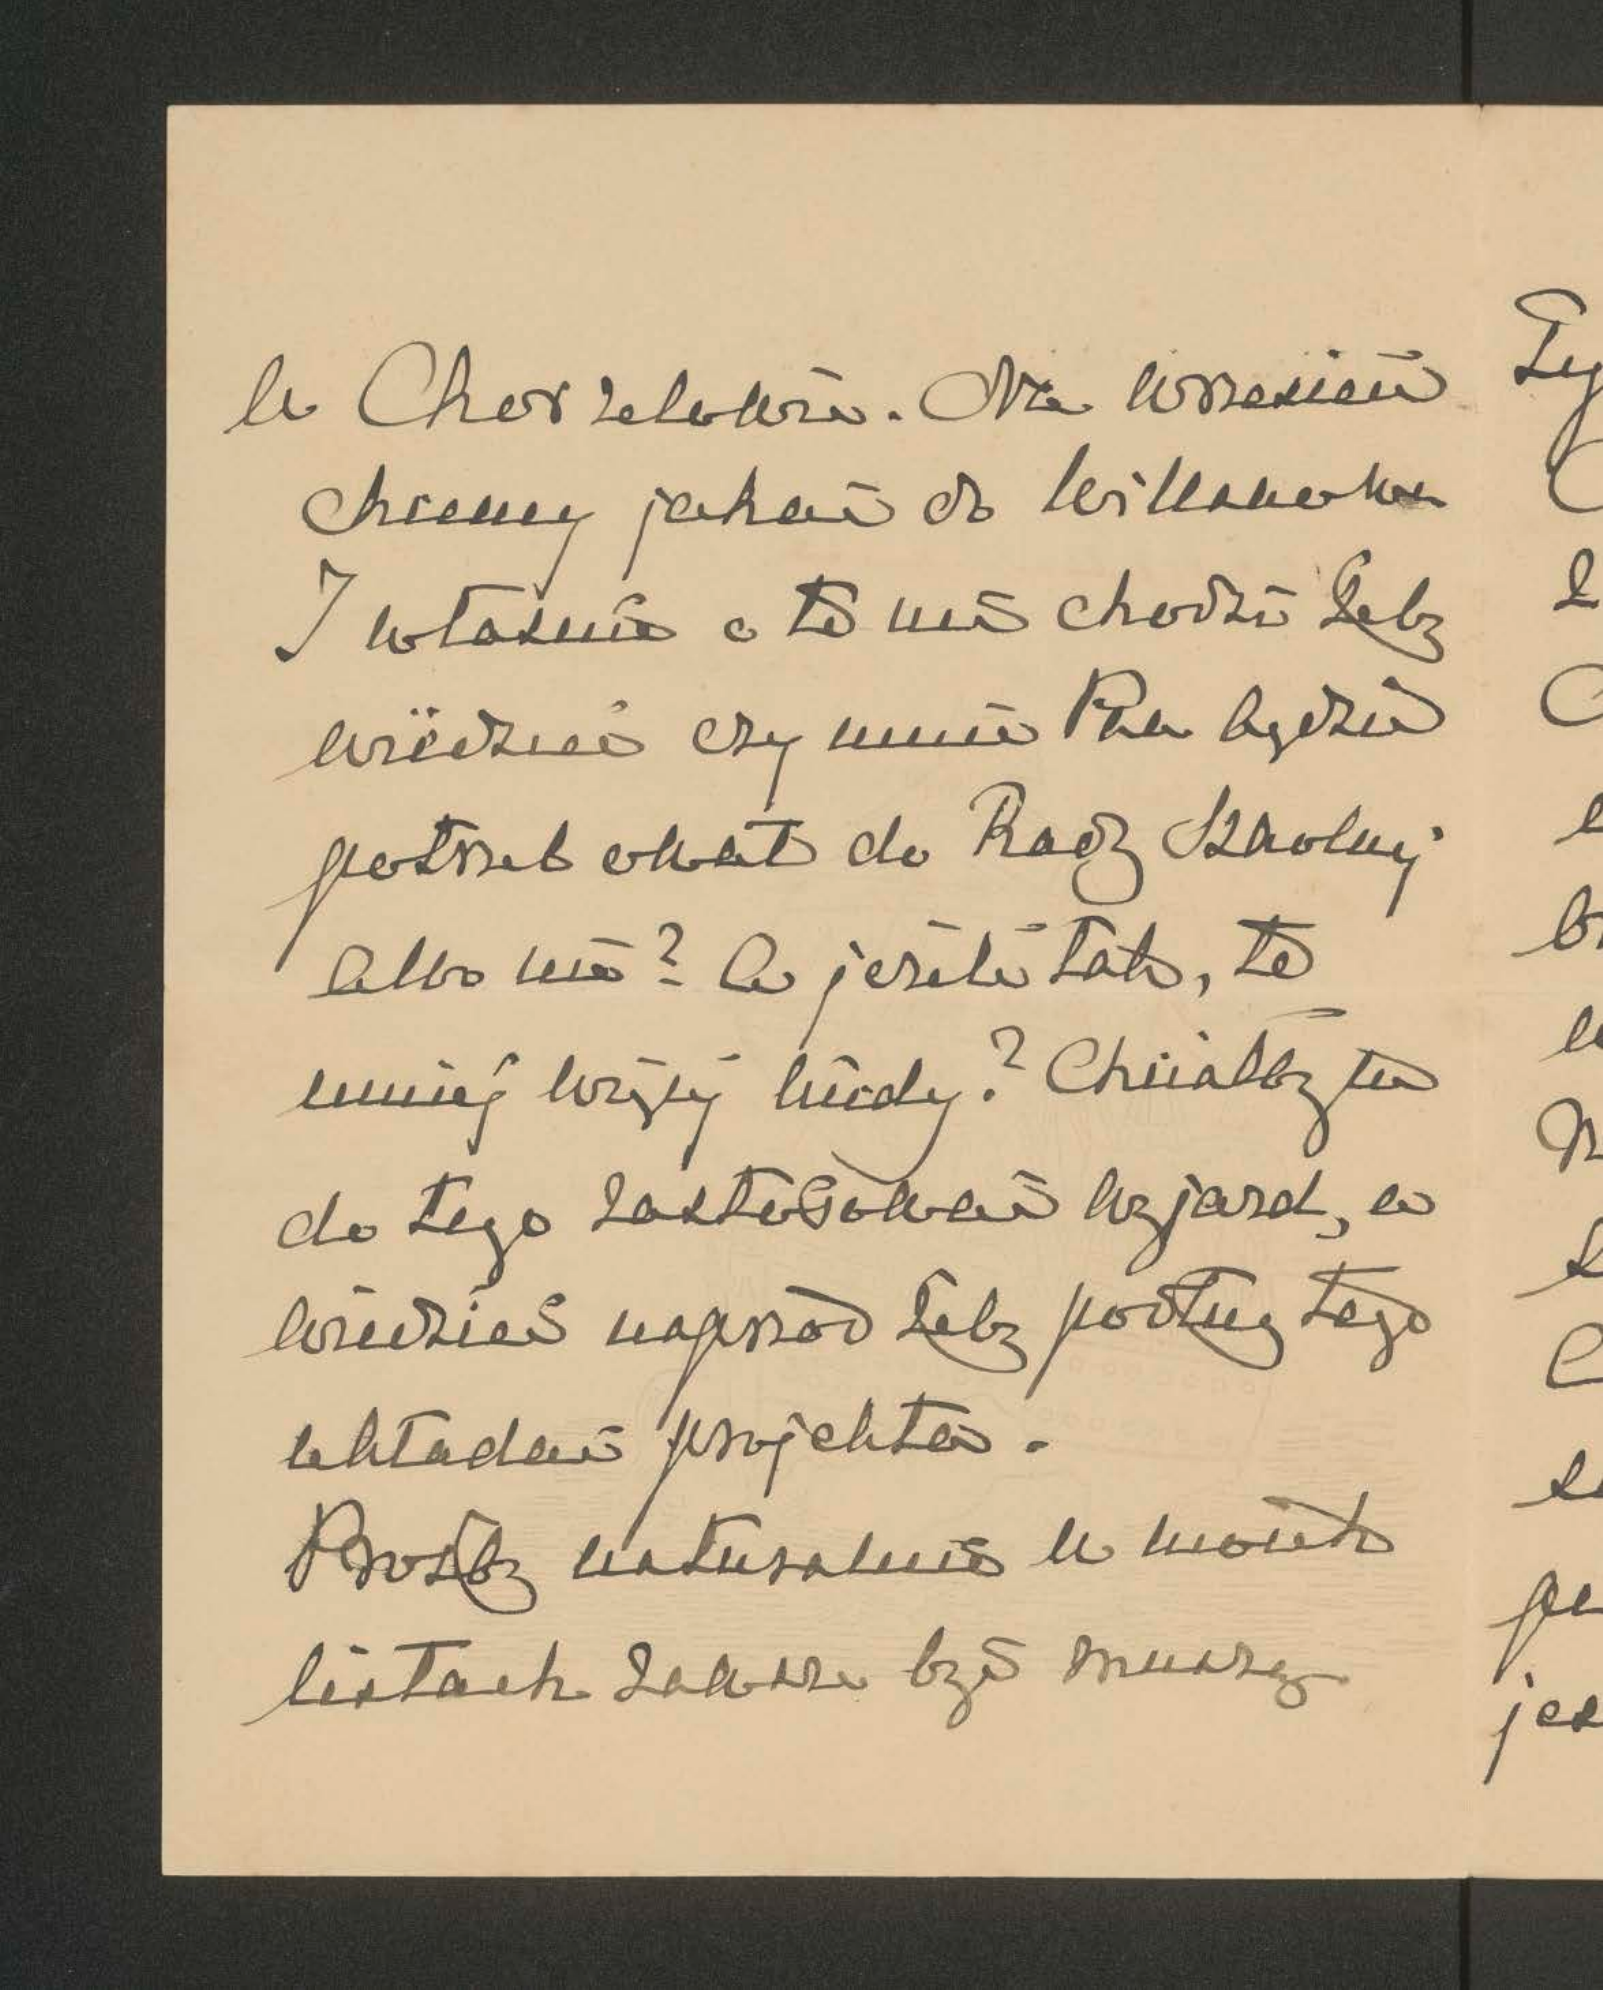 w Chorzelowie. Na wrzesień
chcemy jechać do Willanowa
I właśnie o to mi chodzi żeby
wiedzieć czy mnie Pan będzie
potrzebował do Rady Szkolnej
albo nie? a jeżeli tak, to
mniej więcej kiedy? Chciałbym
do tego zastosować wyjazd, a
wiedzieć naprzód żeby podług tego
układać projekta.
Prośby naturalnie w moich
listach zawsze być muszą